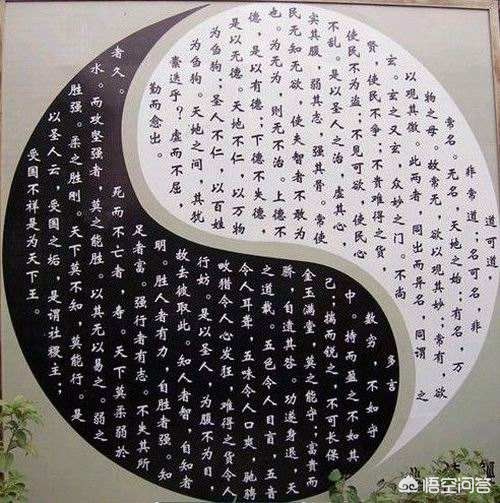 道可道，
非常道；名可名，非
常名。无名，天地之始；有名，万
物之母。故常无，欲以观其妙；常有，欲
以观其徼。此两者，同出而异名，同谓之
玄。玄之又玄，众妙之门。不尚
贤，使民不争；不贵难得之货，
使民不为盗；不见可欲，使民心
不乱。是以圣人之治，虚其心，
实其腹，弱其志，强其骨。常使
民无知无欲，使夫智者不敢为
也。为无为，则无不治。上德不
德，是以有德；下德不失德，
是以无德。天地不仁，以万物
为刍狗；圣人不仁，以百姓
为刍狗。天地之间，其犹
橐迭乎？虚而不屈，
勤而愈出。
多言
数穷，不如守
中。持而盈之不如其
己；揣而锐之，不可长保
金玉满堂，莫之能守；富贵而
骄，自遗其咎。功遂身退，天
之道哉。五色令人目盲，五音
令人耳聋，五味令人口爽，驰骋
畋猎令人心发狂，难得之货令人
行妨。是以圣人，为腹不为目，
故去彼取此。知人者智，自知者
明。胜人者有力，自胜者强。知
足者富。强行者有志。不失其所
者久。死而不亡者，寿。天下莫柔弱於
水。而攻坚强者，莫之能胜。以其无以易之。弱之
胜强。柔之胜刚。天下莫不知，莫能行。是
以圣人云，受国之垢，是谓社稷主；
受国不祥是为天下王。
悟空问答